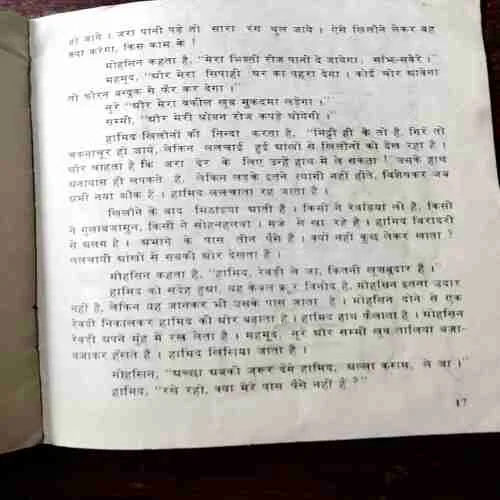 हो जाये । जरा पानी पड़े तो सारा रंग घुल जाये । ऐसे खिलौने लेकर वह
क्या करेगा, किस काम के !
मोहसिन कहता है, "मेरा भिश्ती रोज पानी दे जायेगा । सांझ-सवेरे ।"
महमूद, "और मेरा सिपाही घर का पहरा देगा । कोई चोर आवेगा
तो फौरन बन्दूक से फैर कर देगा ।"
नूरे "और मेरा वकील खूब मुकदमा लड़ेगा ।"
सम्मी, "और मेरी धोबन रोज कपड़े धोयेगी ।"
हामिद खिलौनों की निन्दा करता है, "मिट्टी ही के तो हैं, गिरे तो
चकनाचूर हो जायें, लेकिन ललचाई हुई आंखों से खिलौनों को देख रहा है ।
और चाहता है कि जरा देर के लिए उन्हें हाथ में ले सकता ! उसके हाथ
अनायास ही लपकते हैं, लेकिन लड़के इतने त्यागी नहीं होते, विशेषकर जब
अभी नया शौक है । हामिद ललचाता रह जाता है ।
खिलौने के बाद मिठाइयां आती हैं । किसी ने रेवड़ियां ली हैं, किसी
ने गुलाबजामुन, किसी ने सोहनहलवा । मजे से खा रहे हैं । हामिद बिरादरी
से अलग है । अभागे के पास तीन पैसे हैं । क्यों नहीं कुछ लेकर खाता ?
ललचायी आंखों से सबकी ओर देखता है ।
मोहसिन कहता है, "हामिद, रेवड़ी ले जा, कितनी खुशबूदार हैं ।"
हामिद को संदेह हुआ, यह केवल क्रूर विनोद है, मोहसिन इतना उदार
नहीं है, लेकिन यह जानकर भी उसके पास जाता है । मोहसिन दोने से एक
रेवड़ी निकालकर हामिद की ओर बढ़ाता है । हामिद हाथ फैलाता है । मोहसिन
रेवड़ी अपने मुंह में रख लेता है । महमूद, नूरे और सम्मी खूब तालियां बजा-
बजाकर हंसते हैं । हामिद खिसिया जाता है ।
मोहसिन, "अच्छा अबकी जरूर देंगे हामिद, अल्ला कसम, ले जा ।"
हामिद, "रखे रहो, क्या मेरे पास पैसे नहीं हैं ?"
17